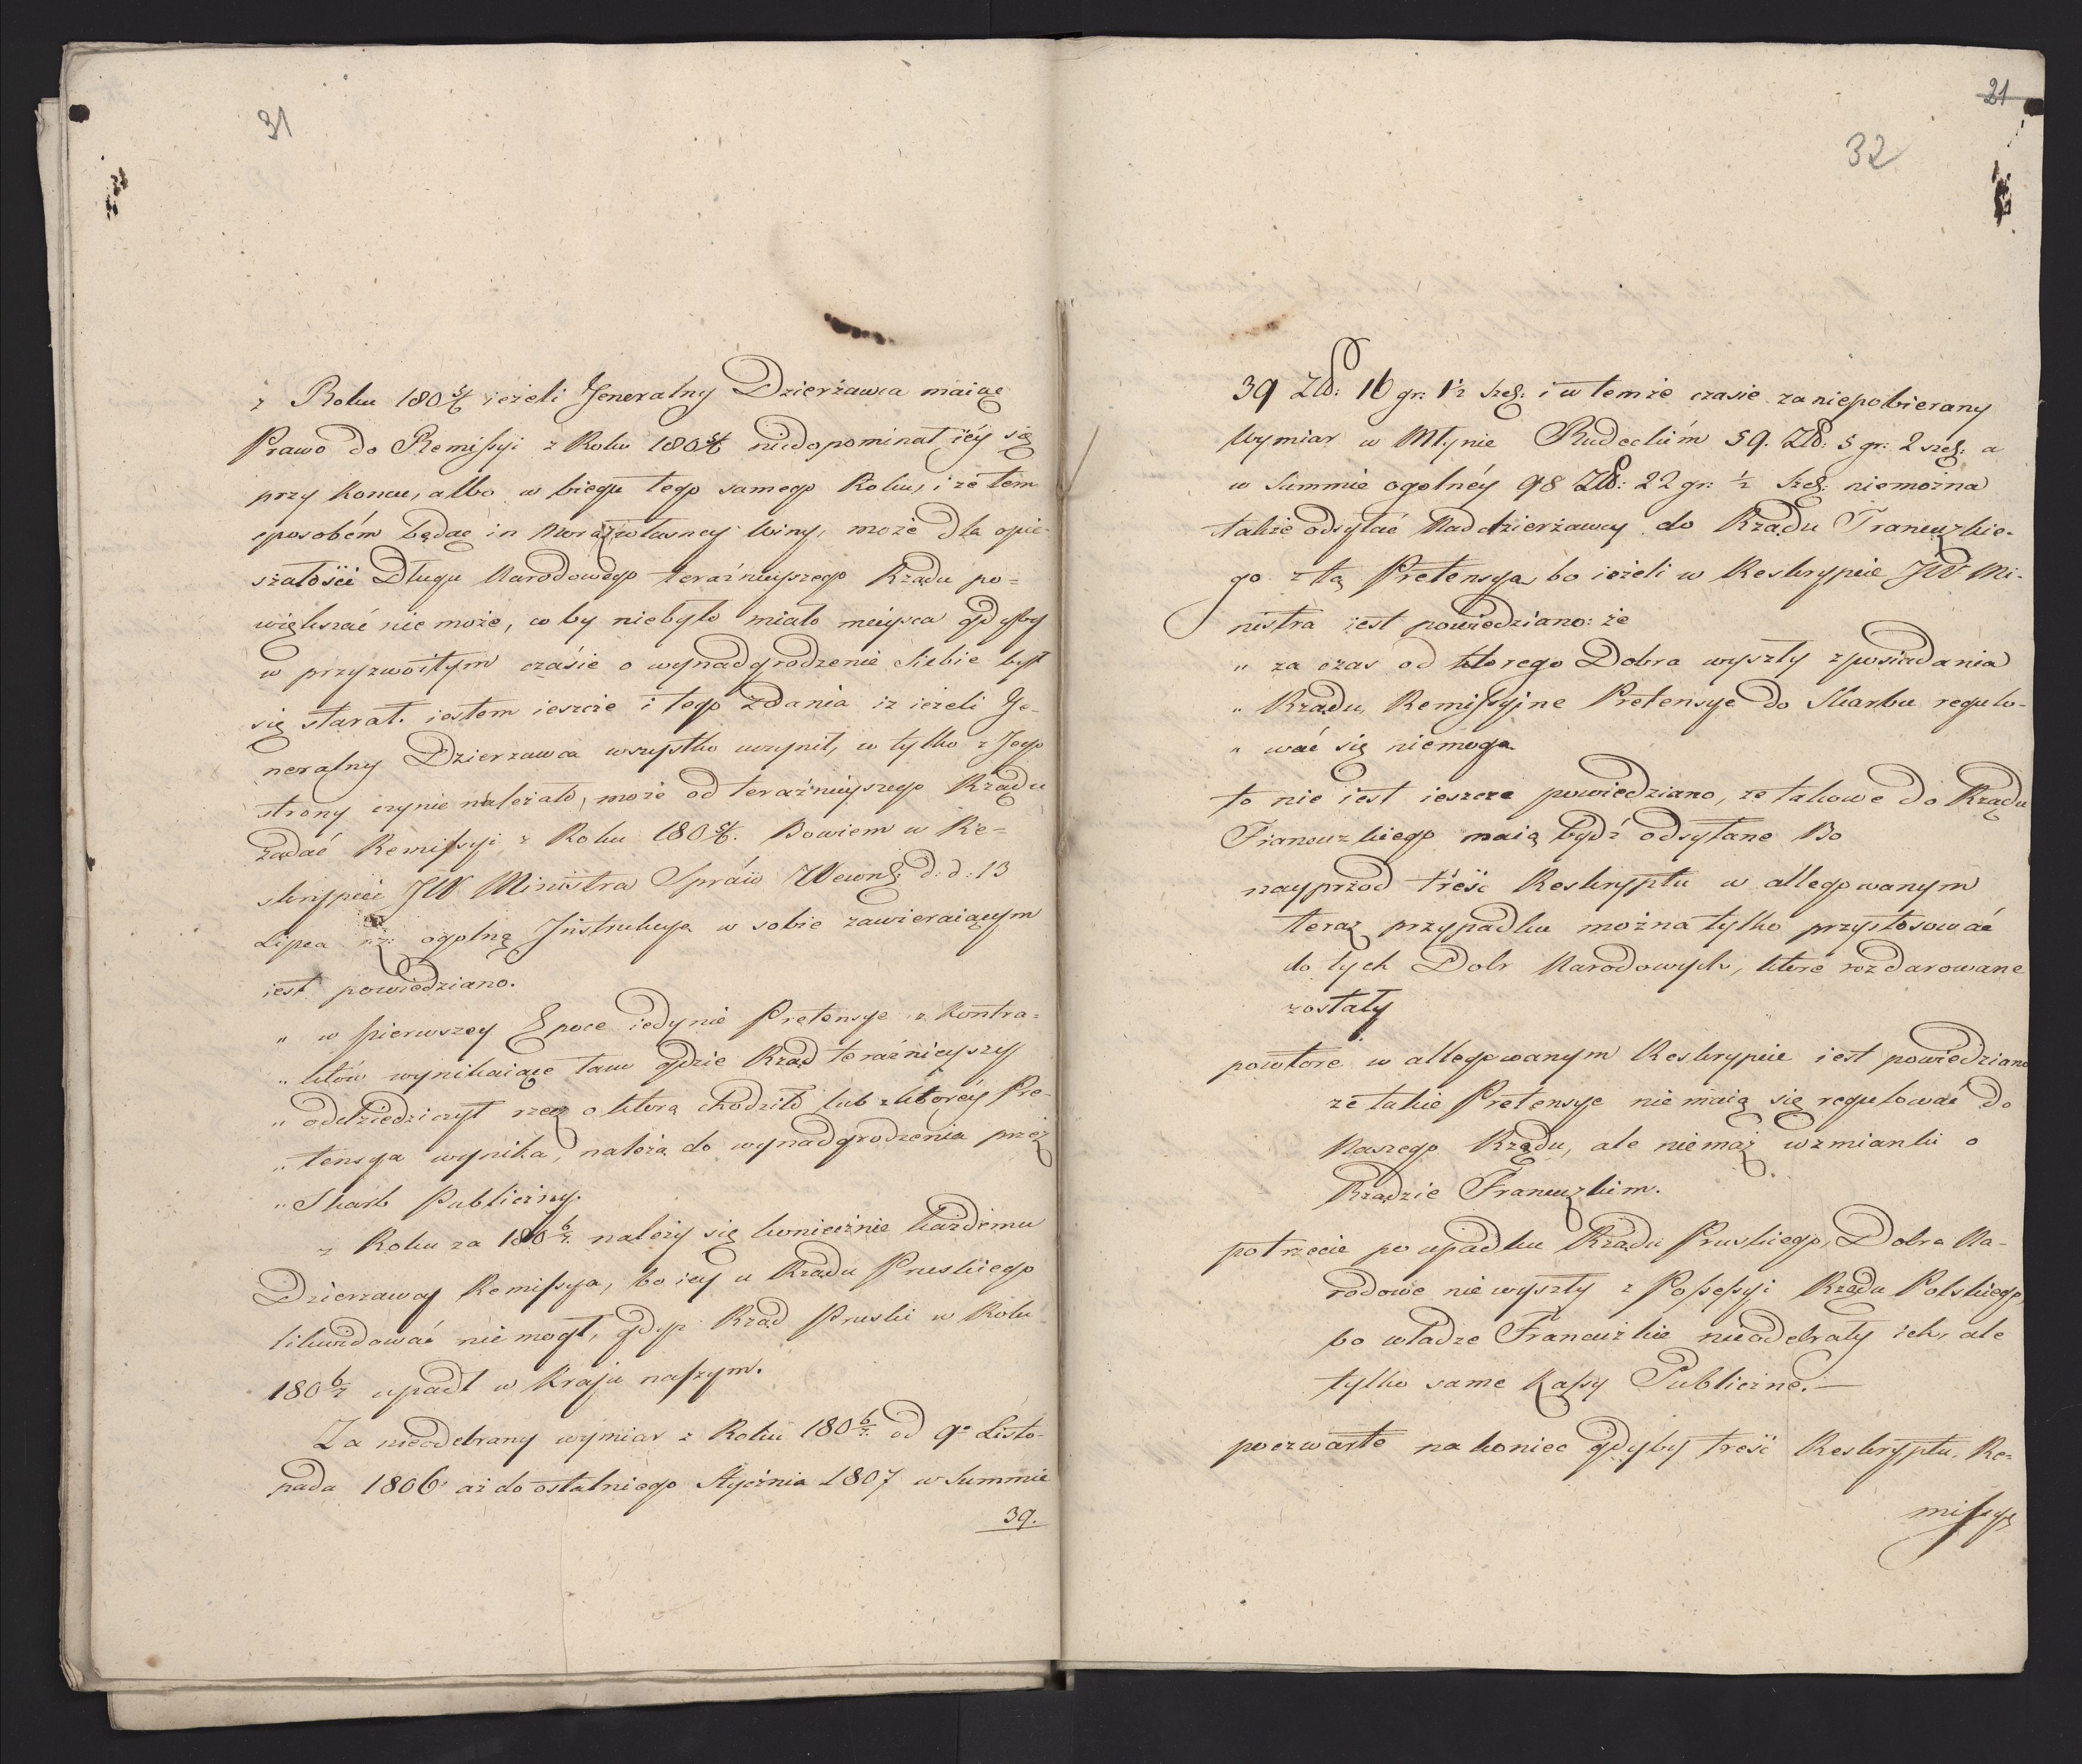 31
z Roku 180 5/6 ieżeli Jeneralny Dzierżawca maiąc
Prawo do Remissyi z Roku 180 5/6 niedopominał iéy się
przy koncu, albo w biegu tego samego Roku, i że tem
sposobém będąc in mora z własney winy, może dla opie-
szałości Długu Narodowego teraźnieyszego Rządu po=
większać nie może, co by niebyło miało mieysca gdyby
w przyzwoitym czásie o wynadgrodzenie siebie był
się starał. iestem ieszcze i tego Zdania iż ieżeli Je-
neralny Dzierzawca wszystko uczynił, co tylko z Jego
strony czynić należało, może od teraźnieyszego Rządu
żądać Remissyi z Roku 180 5/6. Bowiem w Re=
skrypcie JW Ministra Spraw Wewnę: d: d: 13
Lipca rz: ogolną Jnstrukcyą w sobie zawieraiącym
iest powiedziano.
" w pierwszey Epoce iedynie Pretensye z Kontra=
" któw wynikaiące tam gdzie Rząd teráźnieyszy
" oddziedziczył rzecz o którą chodziło lub z któréy Pre-
" tensya wynika, należą do wynadgrodzenia przez
" Skarb Publiczny.
z Roku za 180 6/7 należy się koniecznie każdemu
Dzierzawcy Remissya, bo iey u Rządu Pruskiego
likwidować nie mogł, gdyż Rząd Pruski w Roku
180 6/7 upadł w Kraju naszym.
Za nieodebrany wymiar z Roku 180 6/7 od 9o Listo-
pada 1806 aż do ostatniego Stycznia 1807 w Summie
39.
21
32
39 Zł: 16 gr: 1 1/2 szel: i w temże czasie za niepobierany
Wymiar w Młynie Rudeckim 59. Zł: 5 gr: 2 szel: a
w Summie ogolnéy 98 Zł: 22 gr: 1/2 Szel: niemożna
także odsyłać Naddzierżawcy do Rządu Francuzkie-
go z tą Pretensyą bo ieżeli w Reskrypcie JW Mi-
nistra iest powiedziano: że
" za czas od ktorego Dobra wyszły z posiadania
" Rządu, Remissyjne Pretensye do Skarbu regulo-
" wać się niemogą
to nie iest ieszcze powiedziano, że takowe do Rządu
Francuzkiego maią bydź odsyłane Bo
nayprzod tréść Reskryptu w allegowanym
teraz przypadku można tylko przystosować
do tych Dobr Narodowych, które rozdarowane
zostały
powtore w allegowanym Reskrypcie iest powiedziano
że takie Pretensye nie maią się regulować do
Naszego Rządu, ale niemasz wzmianki o
Rządzie Francuzkim.
potrzecie po upadku Rządu Pruskiego, Dobra Na-
rodowe nie wyszły z Possessyi Rządu Polskiego,
bo władze Francuzkie nieodebrały ich, ale
tylko same Kassy Publiczne. —
poczwarte na koniec gdyby treść Reskryptu, Re=
missye